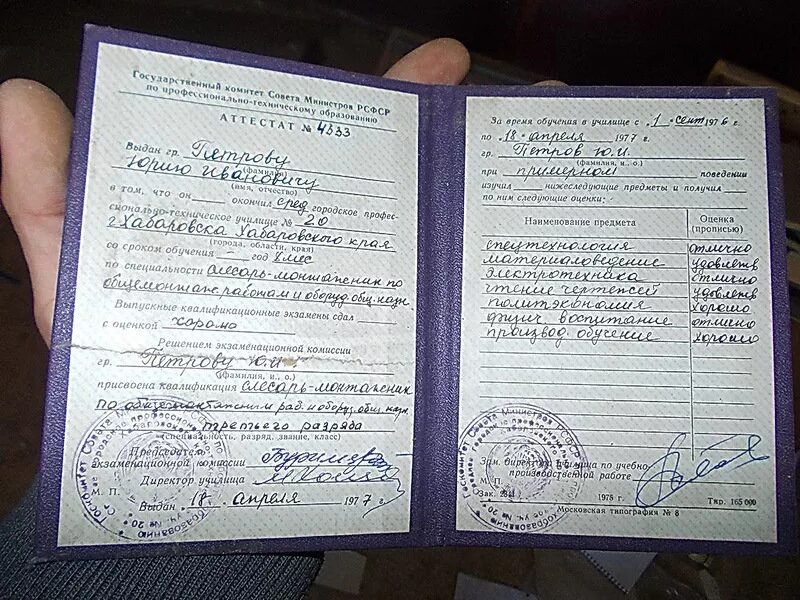 Государственный комитет Совета Министров РСФСР
по профессионально-техническому образованию
АТТЕСТАТ № 4533
Выдан гр. Петрову
(фамилия)
Юрию Ивановичу
(имя, отчество)
в том, что он окончил сред городское профес-
сионально-техническое училище № 20
г Хабаровска Хабаровского края
(города, области, края)
со сроком обучения – год 8 мес
по специальности слесарь-монтажник по
общемонтаж работам и оборуд. общ. назн.
Выпускные квалификационные экзамены сдал
с оценкой хорошо
Решением экзаменационной комиссии
гр. Петрову Ю.И.
(фамилия, и., о.)
присвоена квалификация слесарь-монтажник
по общемонтажным раб. и оборуд. общ. назн.
третьего разряда
(специальность, разряд, звание, класс)
Председатель
экзаменационной комиссии
Директор училища
М. П.
Выдан 18 апреля 1977 г.
За время обучения в училище с „1 “ сент 1976 г.
по „18 “ апреля 1977 г.
гр. Петров Ю.И.
(фамилия, и., о.)
при примерном поведении
изучил нижеследующие предметы и получил
по ним следующие оценки:
Наименование предмета Оценка (прописью)
спецтехнология отлично
материаловедение удовлетв
электротехника отлично
чтение чертежей удовлетв
политэкономия хорошо
физич воспитание отлично
производ. обучение хорошо
Зам. директора училища по учебно-
производственной работе
М. П.
Зак. 1975 г. Тир. 165 000
Московская типография № 8